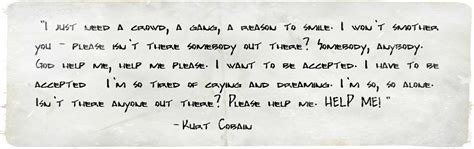 "I just need a crowd, a gang, a reason to smile. I won't smother
you – please isn't there somebody out there? Somebody, anybody.
God help me, help me please. I want to be accepted. I have to be
accepted I'm so tired of crying and dreaming. I'm so, so alone.
Isn't there anyone out there? Please help me. HELP ME!"
-Kurt Cobain